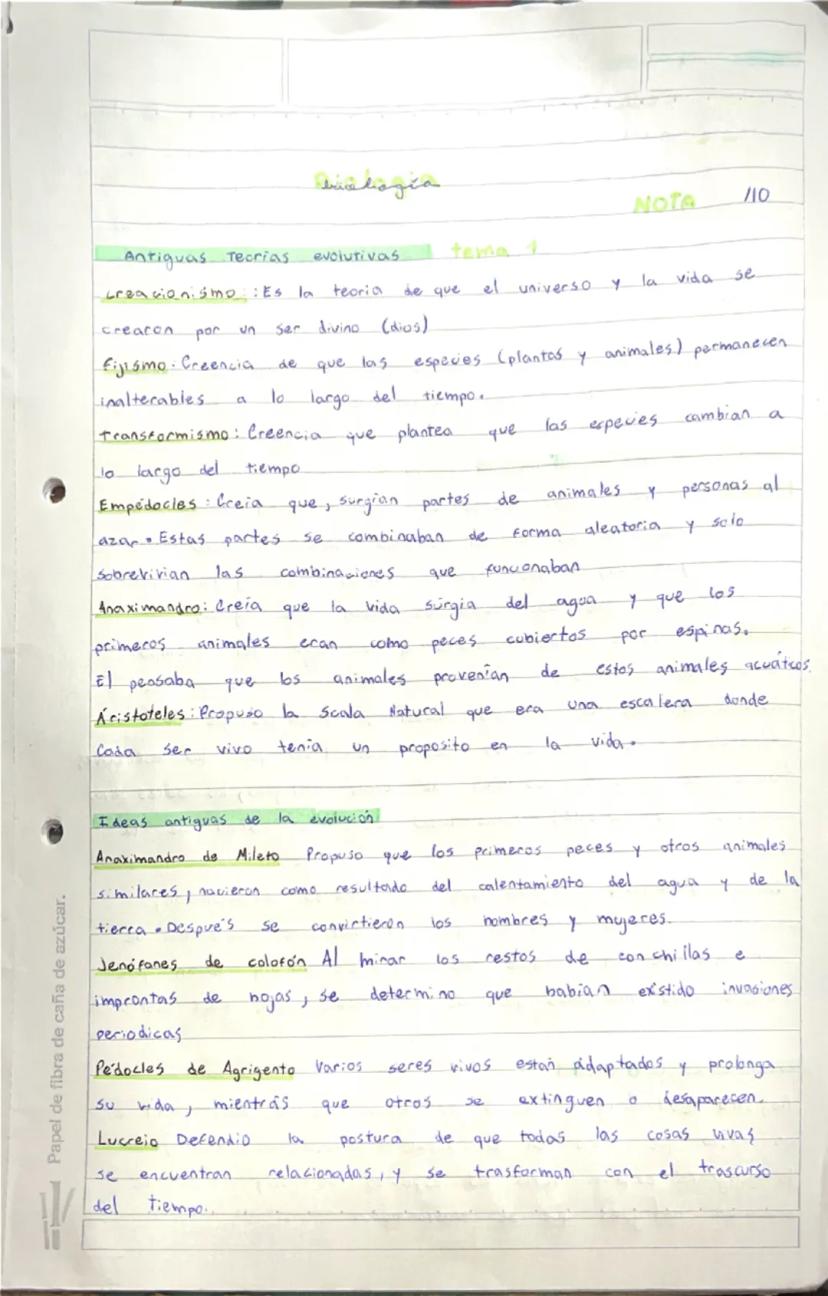 Biología
NOTA /10
Antiguas Teorias evolutivas tema 1
creacionismo : Es la teoria de que el universo y la vida se
crearon por un ser divino (dios)
Fijismo. Creencia de que las especies (plantas y animales) permanecen
inalterables a lo largo del tiempo.
transformismo : Creencia que plantea que las especies cambian a
lo largo del tiempo
Empédocles : Creia que, surgian partes de animales y personas al
azar. Estas partes se combinaban de forma aleatoria y solo
sobrevivian las combinaciones que funcionaban
Anaximandro: Creía que la vida surgia del agua y que los
primeros animales eran como peces cubiertos por espinas.
El pensaba que los animales provenían de estos animales acuátcos.
Áristoteles : Propuso la Scala Natural que era una escalera donde
Cada ser vivo tenia un proposito en la vida.
Ideas antiguas de la evolución
Anaximandro de Mileto Propuso que los primeros peces y otros animales
similares, nacieron como resultado del calentamiento del agua y de la
tierra. Despues se convirtieron los hombres y mujeres.
Jenófanes de colofón Al mirar los restos de conchillas e
improntas de hojas, se determino que habian existido invasiones
periodicas
Pédocles de Agrigento Varios seres vivos estan adaptados y prolonga
su vida, mientras que otros se extinguen o desaparecen.
Lucreio Defendio la postura de que todas las cosas vivas
se encuentran relacionadas, y se trasforman con el trascurso
del tiempo.
Papel de fibra de caña de azúcar.